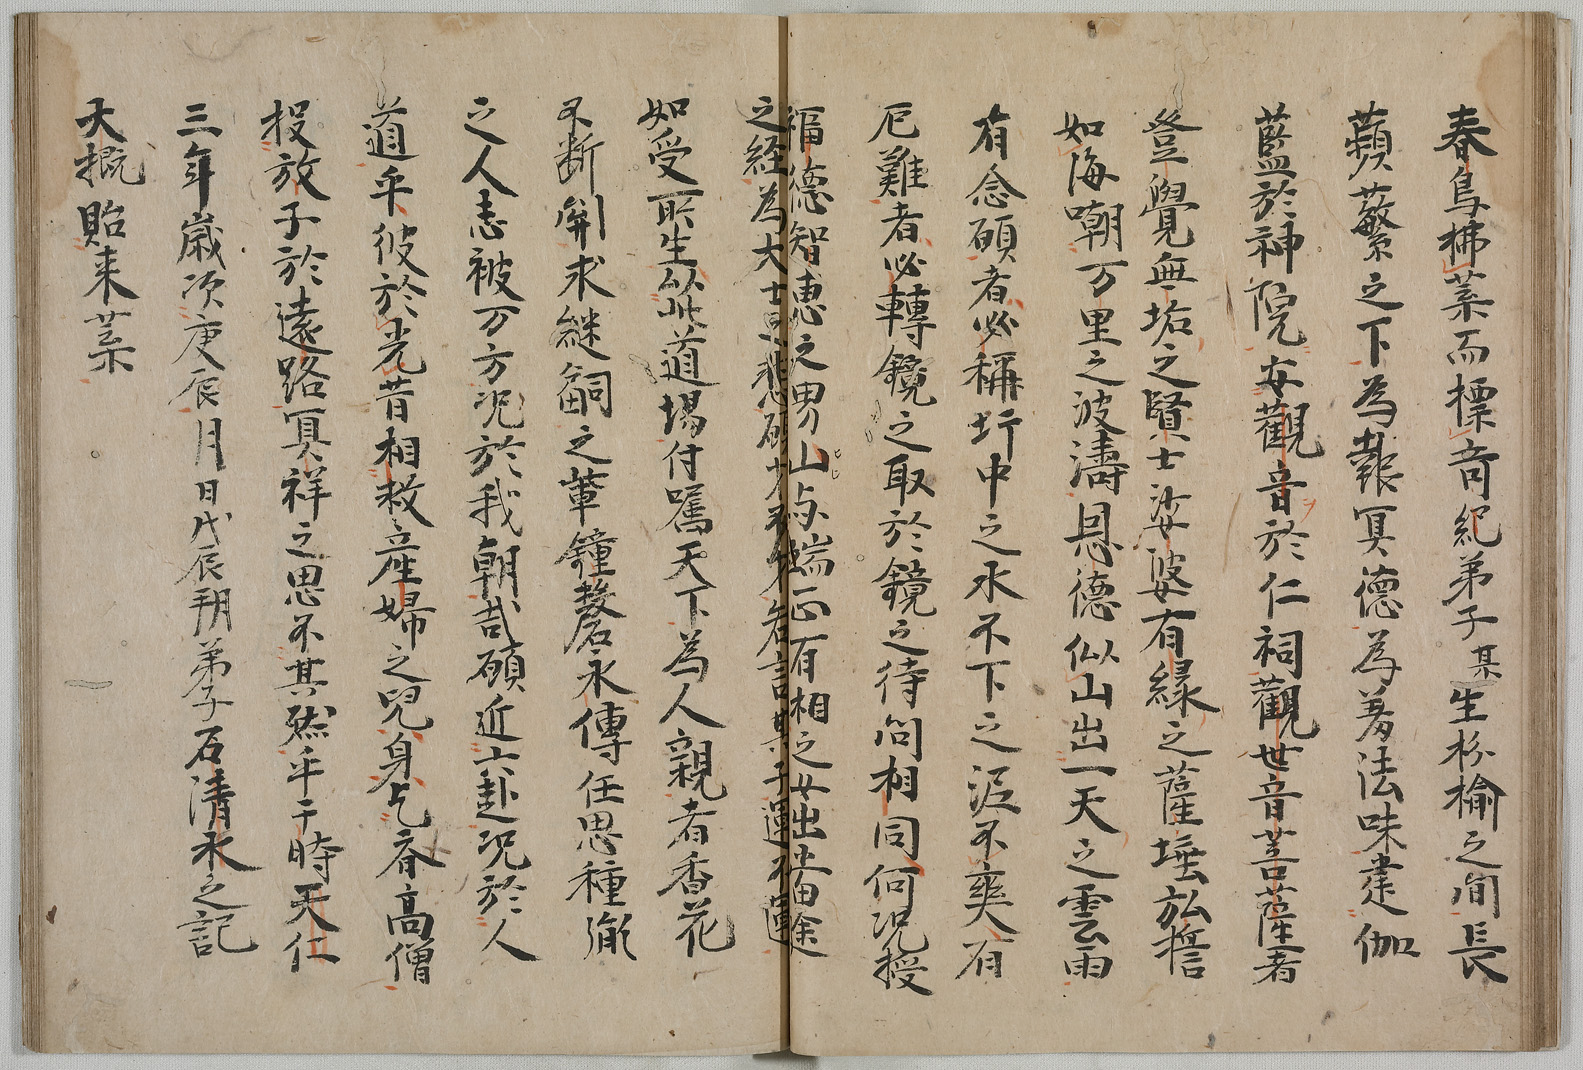 春鳥拂葉而標奇紀弟子某生枌榆之間長
蘋蘩之下為報冥德為善法味建伽
藍於神院安觀音於仁祠觀世音菩薩者
登覺無垢之賢士娑婆有緣之薩埵弘誓
如海嘲万里之波濤恩德似山出一天之雲雨
有念顧者必稱圻中之水不下之泥不爽有
厄難者必轉鏡之取於鏡之待問相同何況授
福德智惠之男山与端正有相之女出當途
之經為大士悲願
如受所生以此道場付囑天下為人親者香花
不斷開求繼嗣之輩鐘磬永傳任思種胤
之人志被万方況於我朝哉顧近六赴況於人
道乎彼於光昔相救產婦之兒身之脊高僧
投放子於遠路冥祥之思不其然乎于時天仁
三年歲次庚辰月日戊辰朔弟子石清水之記
大概貽来葉